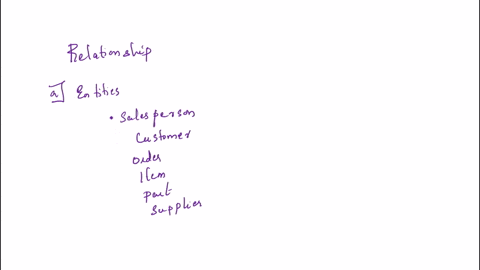 Relationship
a] Entities
• Salesperson
Customer
Order
Item
Part
Supplier